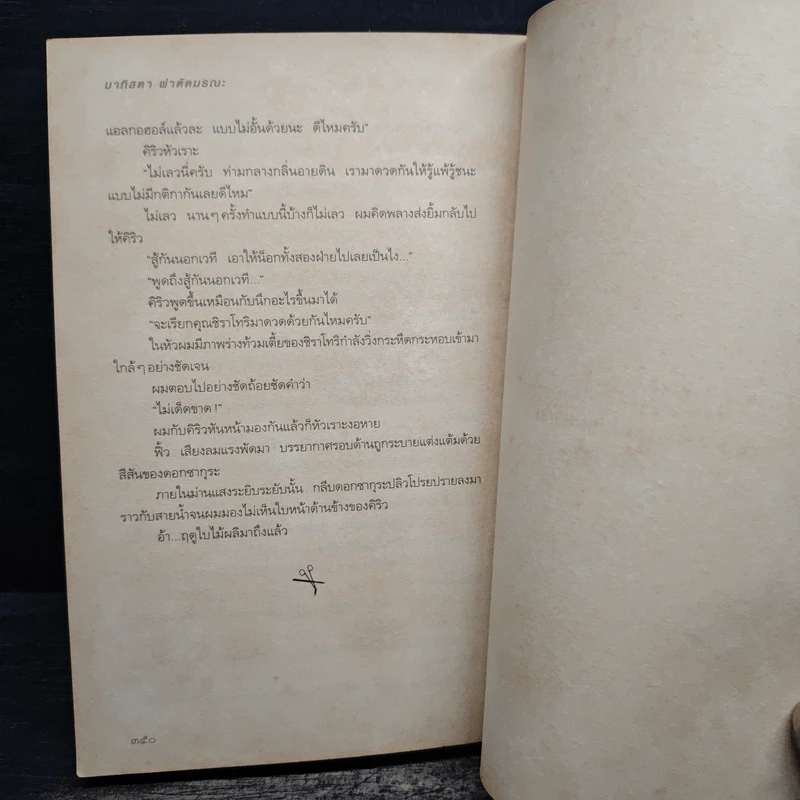 บาทิสตา ผ่าตัดมรณะ
แอลกอฮอล์แล้วละ แบบไม่อั้นด้วยนะ ดีไหมครับ”
คิริวหัวเราะ
“ไม่เลวนี่ครับ ท่ามกลางกลิ่นอายดิน เรามาดวดกันให้รู้แพ้รู้ชนะ
แบบไม่มีกติกากันเลยดีไหม”
ไม่เลว นานๆ ครั้งทำแบบนี้บ้างก็ไม่เลว ผมคิดพลางส่งยิ้มกลับไป
ให้คิริว
“สู้กันนอกเวที เอาให้น็อกทั้งสองฝ่ายไปเลยเป็นไง...”
“พูดถึงสู้กันนอกเวที...”
คิริวพูดขึ้นเหมือนกับนึกอะไรขึ้นมาได้
“จะเรียกคุณชิราโทริมาดวดด้วยกันไหมครับ”
ในหัวผมมีภาพร่างท้วมเตี้ยของชิราโทริกำลังวิ่งกระหืดกระหอบเข้ามา
ใกล้ๆ อย่างชัดเจน
ผมตอบไปอย่างชัดถ้อยชัดคำว่า
“ไม่เด็ดขาด !”
ผมกับคิริวหันหน้ามองกันแล้วก็หัวเราะงอหาย
ฟิ้ว เสียงลมแรงพัดมา บรรยากาศรอบด้านถูกระบายแต่งแต้มด้วย
สีสันของดอกซากุระ
ภายในม่านแสงระยิบระยับนั้น กลีบดอกซากุระปลิวโปรยปรายลงมา
ราวกับสายน้ำจนผมมองไม่เห็นใบหน้าด้านข้างของคิริว
อ้า...ฤดูใบไม้ผลิมาถึงแล้ว
๓๕๐